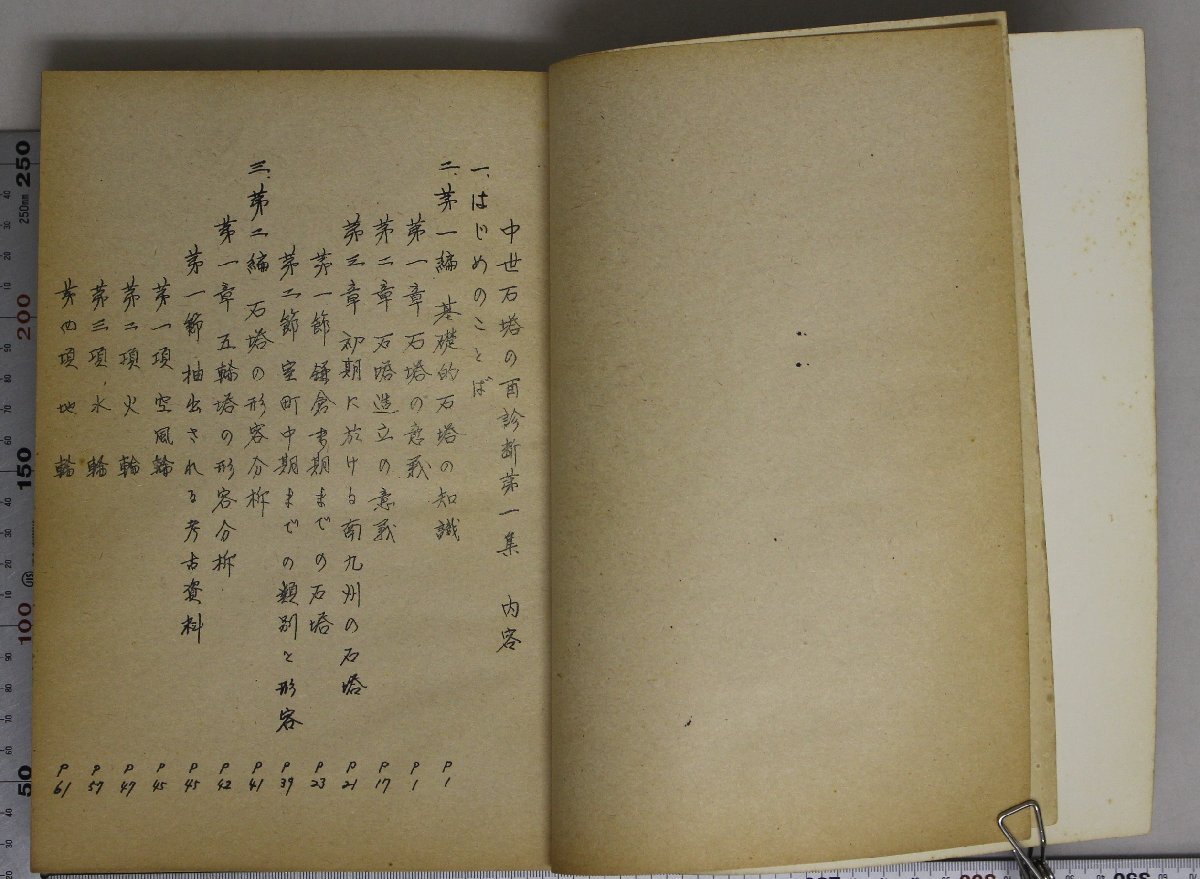 中世石塔の再診断第一集 内容
一、はじめのことば
二、第一編 基礎的石塔の知識 P1
第一章 石塔の意義 P1
第二章 石塔造立の意義 P17
第三章 初期に於ける南九州の石塔 P21
第一節 鎌倉末期までの石塔 P23
第二節 室町中期までの類別と形容 P39
三、第二編 石塔の形容分析 P41
第一章 五輪塔の形容分析 P42
第一節 抽出される考古資料 P45
第一項 空風輪 P45
第二項 火輪 P47
第三項 水輪 P57
第四項 地輪 P61
250
250mm
200
150
100
50